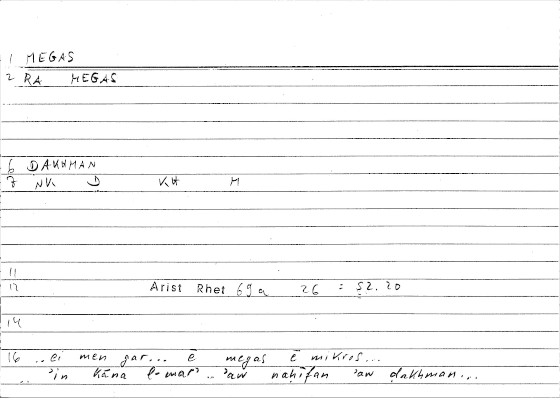 1 MEGAS
2 RA MEGAS
6 DAKHMAN
7 NK D KH M
11
12 Arist Rhet 69a 26 : 52.20
14
16 ..ei men gar... ē megas ē mikros...
.. 'in kāna l-mar' .. 'aw naḥīfan 'aw ḍakhman...